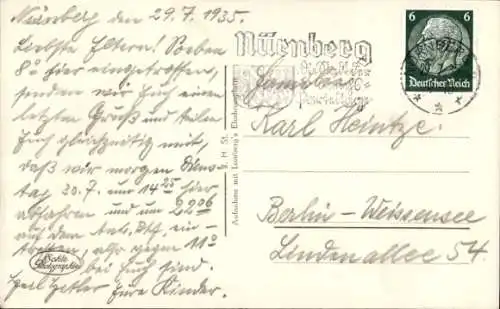 Nürnberg den 29.7.1935.
Liebste Eltern! Soeben
8° hier eingetroffen,
senden wir Euch einen
letzten Gruß und teilen
Euch gleichzeitig mit,
daß wir morgen Diens-
tag 30.7. um 14 25 hier
abfahren und um 22 06
auf dem Anh. Bhf. ein-
treffen, also gegen 11°
bei Euch sind.
Heil Hitler Eure Kinder.
Echte Photographie
Nürnberg
die Stadt der
Reichsparteitage
6 6
Deutsches Reich
Familie
Karl Heintze.
Berlin-Weissensee
Lindenallee 54.